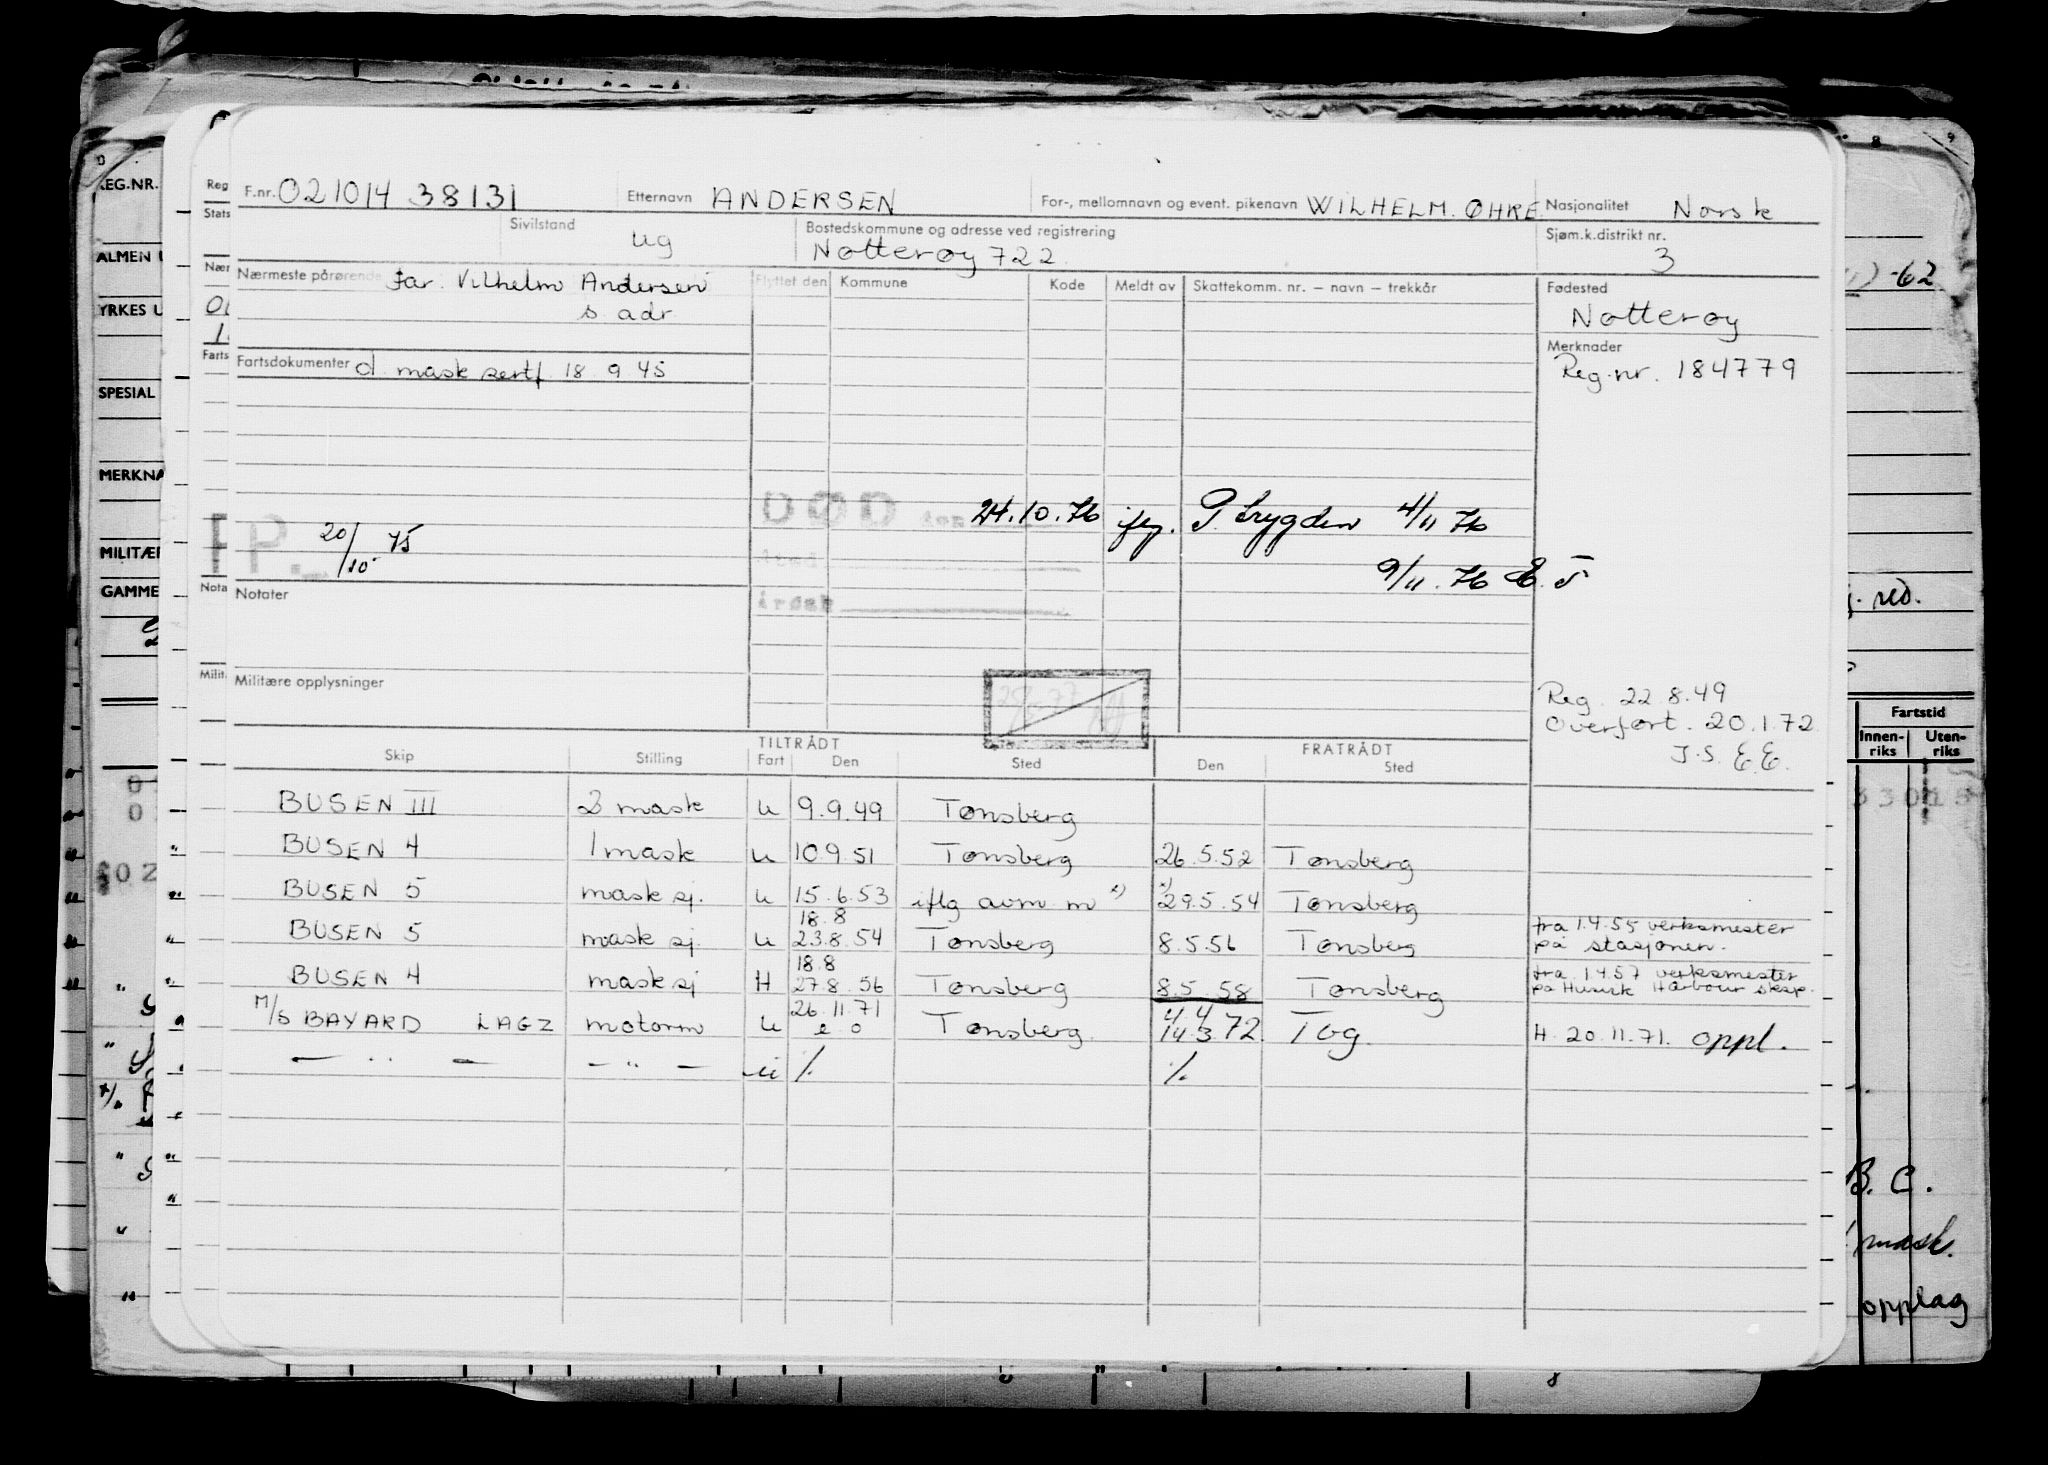 F.nr. 021014 38131 Etternavn ANDERSEN For-, mellomnavn og event. pikenavn WILHELM. ØHRE Nasjonalitet Norsk
Sivilstand ug Bostedskommune og adresse ved registrering Nøtterøy 722. Sjøm.k.distrikt nr. 3
Nærmeste pårørende Far. Vilhelm Andersen Flyttet den Kommune Kode Meldt av Skattekomm. nr. – navn – trekkår Fødested
s. adr Nøtterøy
Fartsdokumenter d. mask sertf. 18 9 45 Merknader
Reg.nr. 184779
DØD den 24.10.76 iflg. P. trygden 4/11 76
PP. 20/10 75
9/11. 76 E. T
Notater
Militære opplysninger
Reg. 22.8.49
Overført. 20.1.72
J.S. E.E.
TILTRÅDT FRATRÅDT
Skip Stilling Fart Den Sted Den Sted
BUSEN III 2 mask u 9.9.49 Tønsberg
BUSEN 4 1 mask u 10 9 51 Tønsberg 26.5.52 Tønsberg
BUSEN 5 mask sj. u 15.6.53 iflg avm. m x) x) 29.5.54 Tønsberg
BUSEN 5 mask sj. u 18.8 23.8.54 Tønsberg 8.5.56 Tønsberg fra 1.4.55 verksmester
på stasjonen.
BUSEN 4 mask sj H 18.8 27.8.56 Tønsberg 8.5.58 Tønsberg fra 1.4.57 verksmester
på Husvik Harbour
M/S BAYARD LAGZ motorm u 26.11.71 e o Tønsberg. 4/4 14.3.72. Tbg. H. 20.11.71. oppl.
— " — — " — u ./. ./.
REG.NR.
ALMEN U
YRKES U
SPESIAL
MERKNA
MILITÆR
GAMME
Reg
Stats
Nær
Farts
Nota
Milit
-62
Fartstid
Innen-
riks
Uten-
riks
B. C.
mask.
opplag